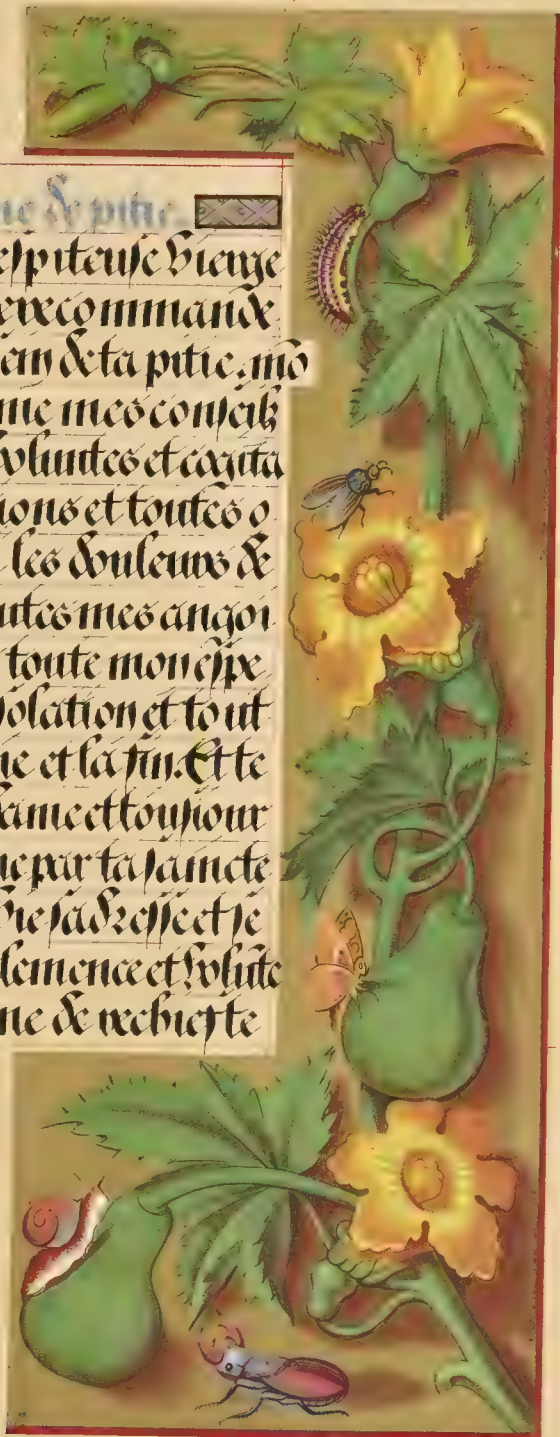 me de pitie.
espiteuse vierge
ie recommande
ein de ta pitie. mō
me mes conseilz
voluntes et cogita
ions et toutes o
les douleurs de
utes mes angoi
toute mon espe
solation et tout
ie et la fin. Et te
dame et tousiour
ue par ta saincte
vie sadresse et se
lemence et volūte
me de rechief te